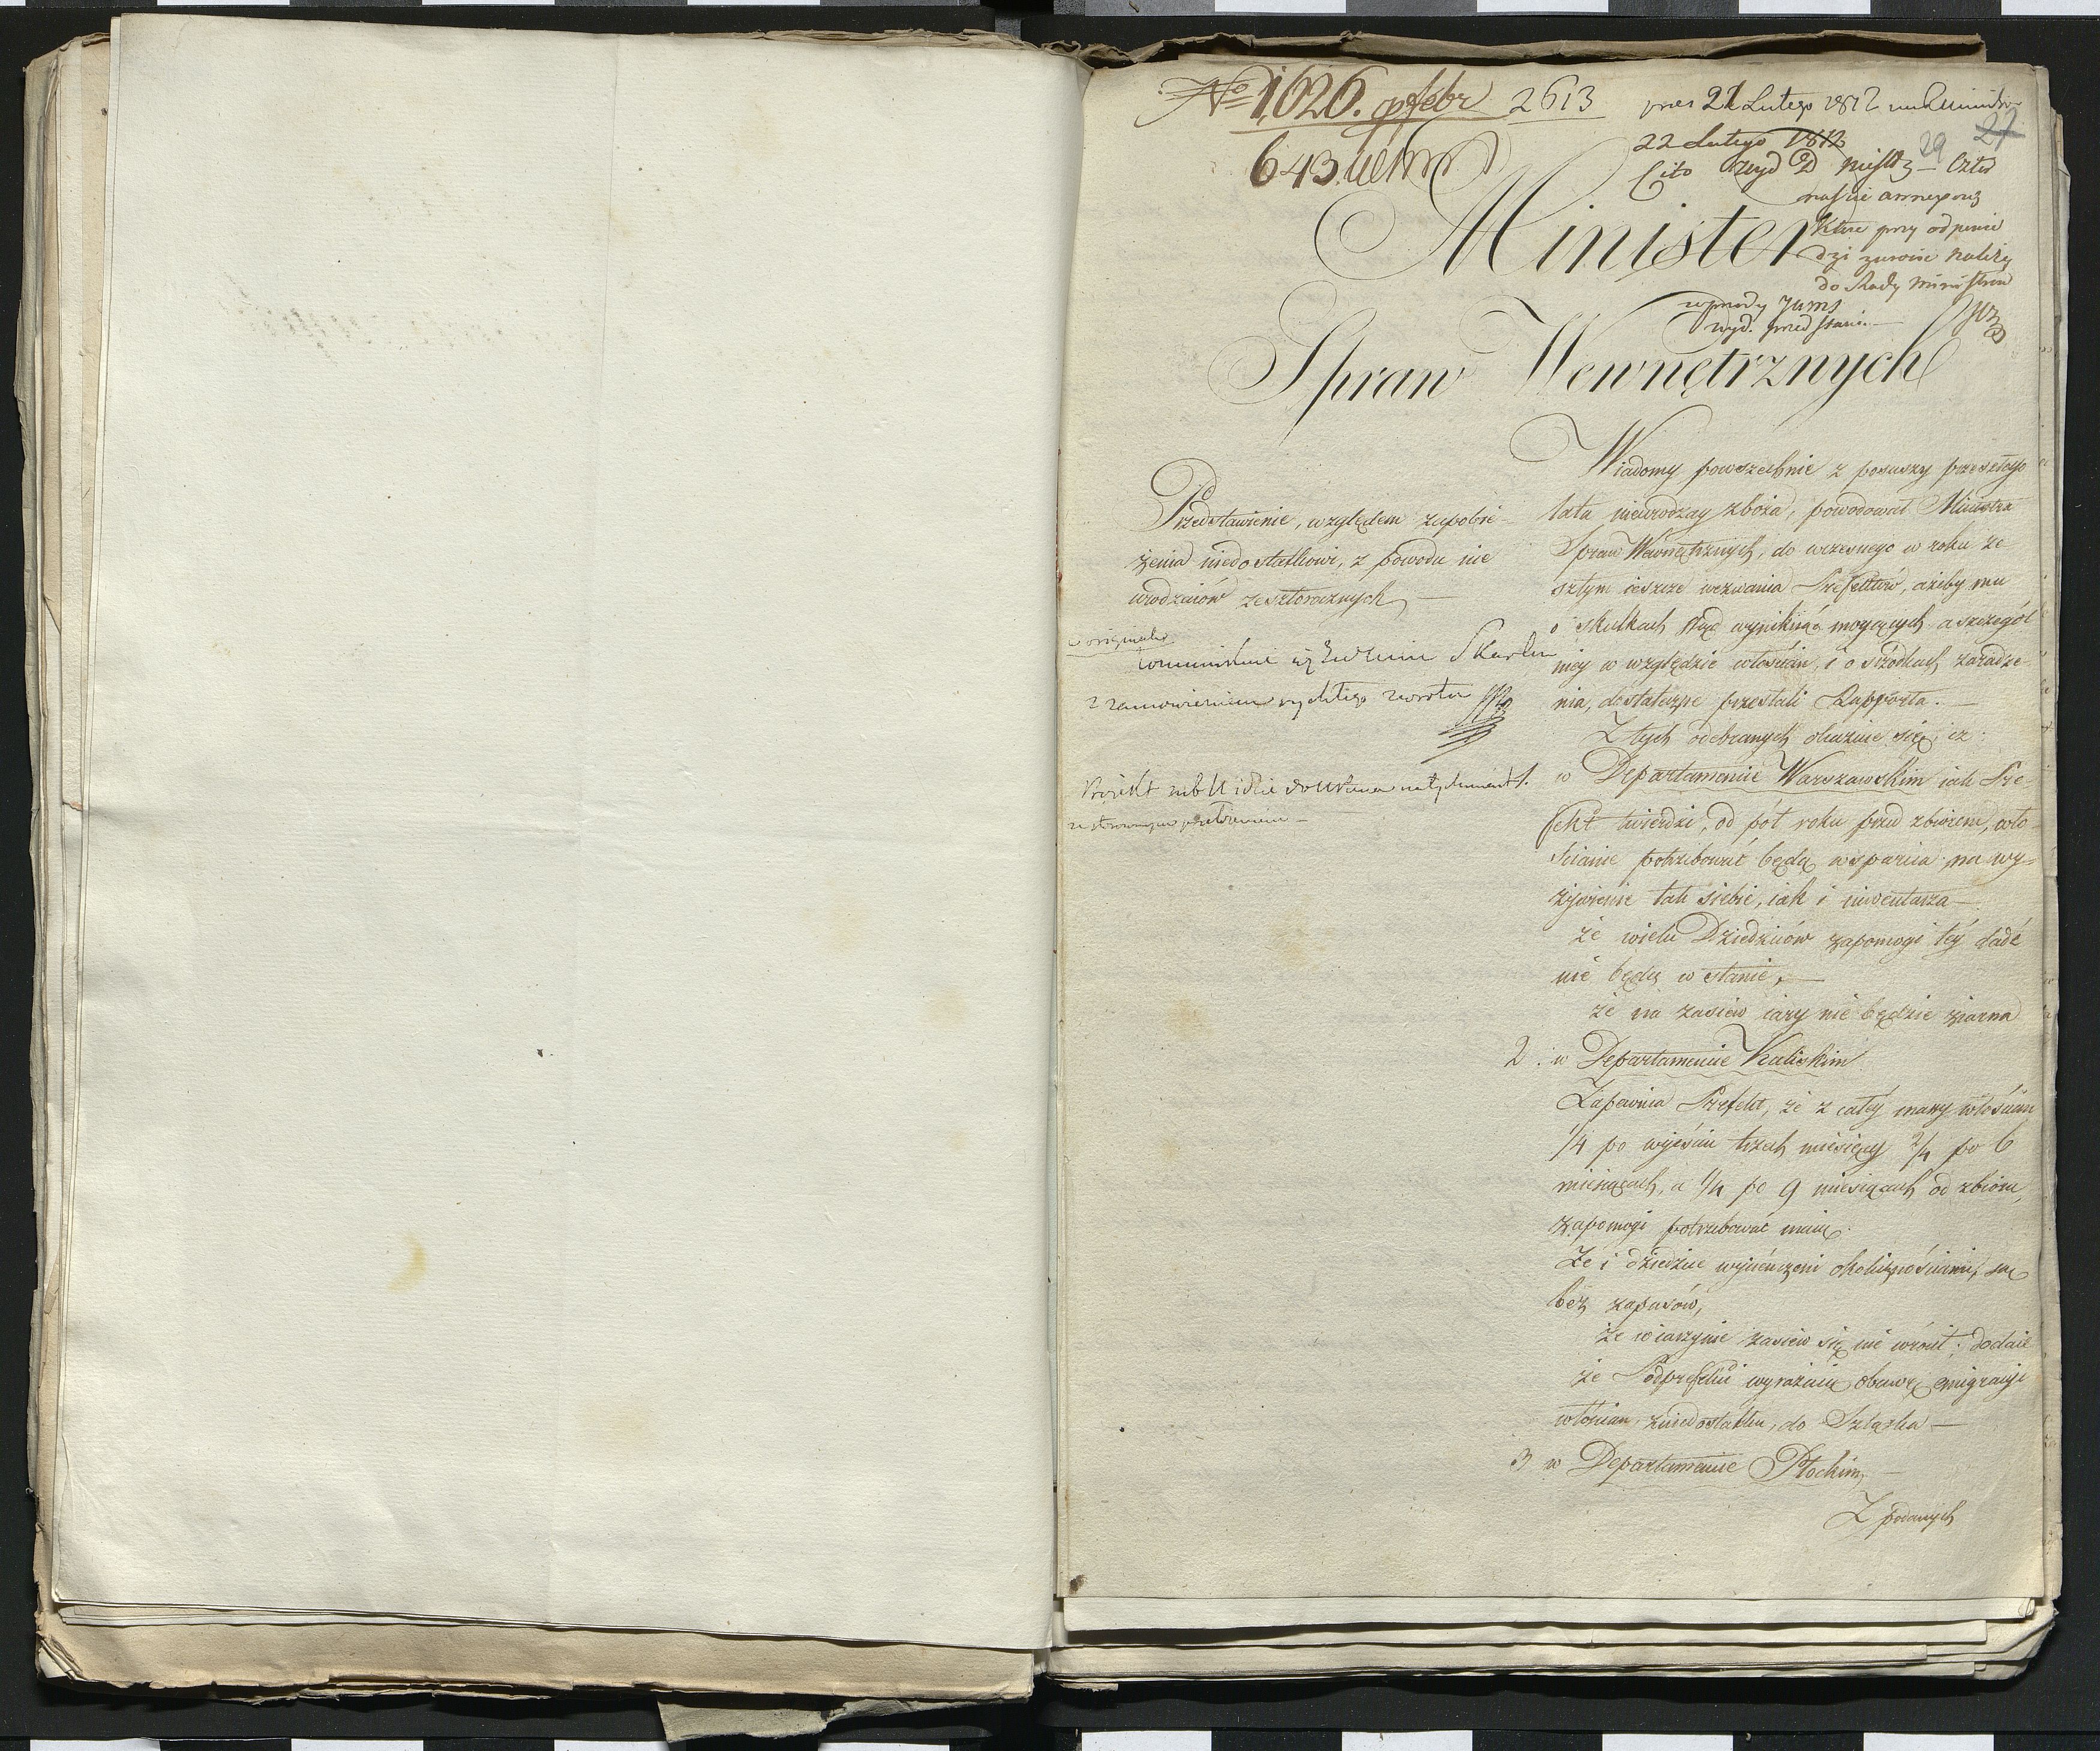 No 1,626. pr febr 2613
21 Lutego 1812
643
22 Lutego 1812
29 27
Cito
które przy odpowie
dzi zwrócić należy
do Rady Ministrów
Minister
Spraw Wewnętrznych
Przedstawienie, względem zapobie-
żenia niedostatkowi, z powodu nie
urodzaiów zeszłorocznych, —
z zamówieniem rychłego zwrotu
Wiadomy powszechnie z posuszy przeszłego
lata nieurodzay zboża, powodował Ministra
Spraw Wewnętrznych, do wczesnego w roku ze
szłym ieszcze wezwania Prefektów, ażeby mu
o skutkach stąd wyniknąć mogących a szczegól
niey w względzie włościan, i o środkach zaradze
nia, dostateczne przesłali Rapporta. —
Z tych odebranych okazuie się, iż:
w Departamencie Warszawskim iak Pre-
fekt twierdzi, od pół roku przed zbiorem, wło-
ścianie potrzebować będą wsparcia na wy=
żywienie tak siebie, iak i inwentarza —
że wielu Dziedziców zapomogi téy dadź
nie będą w stanie, —
że na zasiew iary nie będzie ziarna
2. w Departamencie Kaliskim
Zapewnia Prefekt, że z całéy massy włościan
1/4 po wyjściu trzech miesięcy 2/4 po 6
miesiącach, a 1/4 po 9 miesiącach od zbioru,
zapomogi potrzebować maią.
Że i dziedzice wycieńczeni okolicznościami, są
bez zapasów,
że w iarzynie zasiew się nie wrócił; dodaie
że Podprefekci wyrażaią obawę emigracyi
włościan z niedostatku, do Szląska —
3 w Departamencie Płockim, —
Z podanych